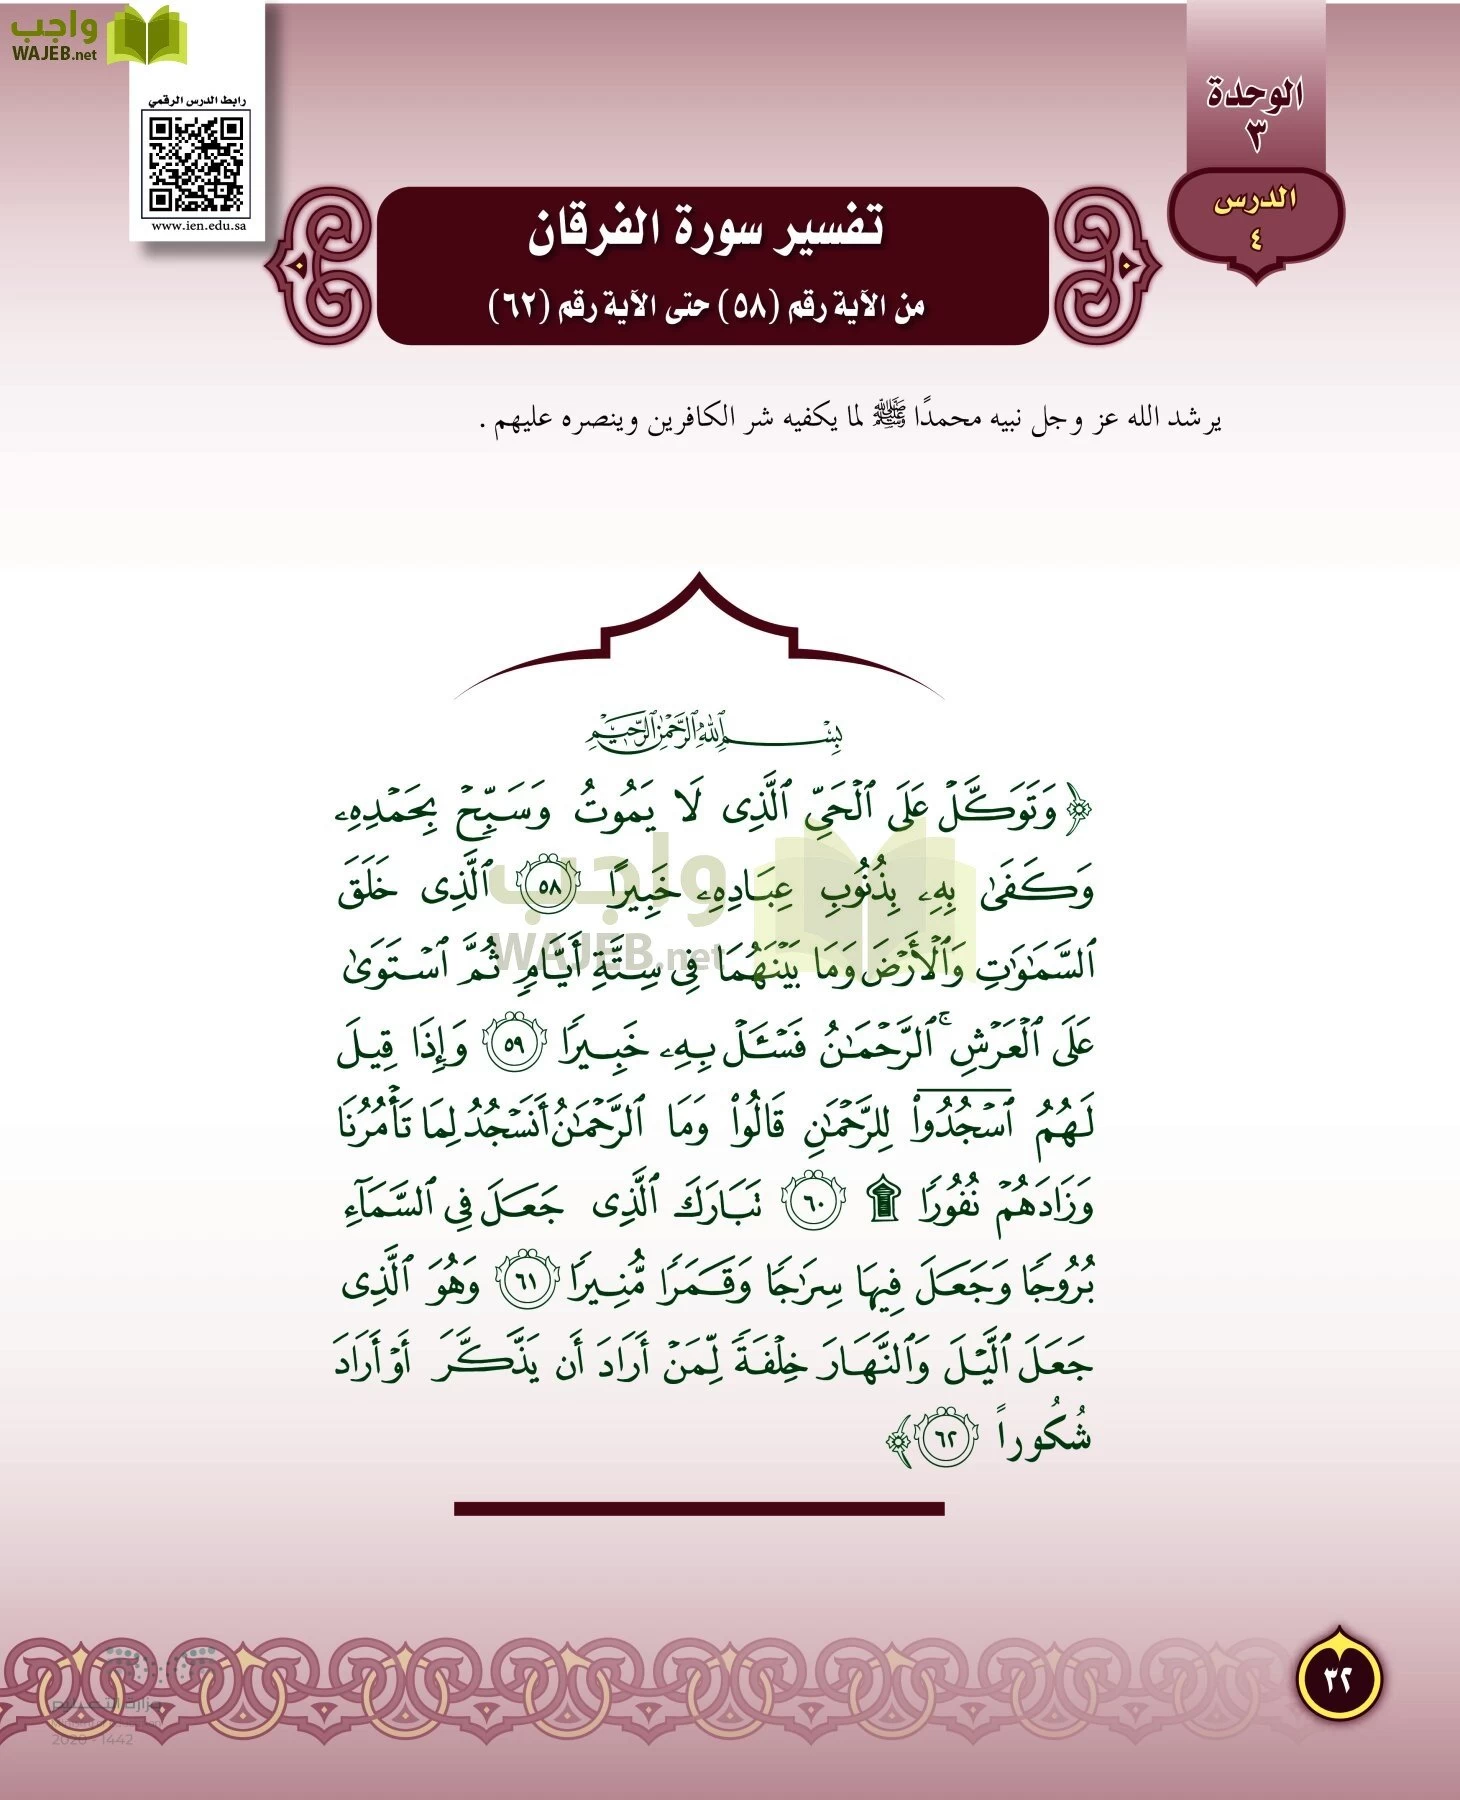 واجب
WAJEB.net
رابط الدرس الرقمي
www.ien.edu.sa
الوحدة
٣
الدرس
٤
تفسير سورة الفرقان
من الآية رقم (٥٨) حتى الآية رقم (٦٢)
يرشد الله عز وجل نبيه محمدًا ﷺ لما يكفيه شر الكافرين وينصره عليهم .
بِسْمِ ٱللَّهِ ٱلرَّحْمَٰنِ ٱلرَّحِيمِ
﴿وَتَوَكَّلْ عَلَى ٱلْحَىِّ ٱلَّذِى لَا يَمُوتُ وَسَبِّحْ بِحَمْدِهِۦ
وَكَفَىٰ بِهِۦ بِذُنُوبِ عِبَادِهِۦ خَبِيرًا ٥٨ ٱلَّذِى خَلَقَ
ٱلسَّمَٰوَٰتِ وَٱلْأَرْضَ وَمَا بَيْنَهُمَا فِى سِتَّةِ أَيَّامٍ ثُمَّ ٱسْتَوَىٰ
عَلَى ٱلْعَرْشِ ۚ ٱلرَّحْمَٰنُ فَسْـَٔلْ بِهِۦ خَبِيرًا ٥٩ وَإِذَا قِيلَ
لَهُمُ ٱسْجُدُوا۟ لِلرَّحْمَٰنِ قَالُوا۟ وَمَا ٱلرَّحْمَٰنُ أَنَسْجُدُ لِمَا تَأْمُرُنَا
وَزَادَهُمْ نُفُورًا ۩ ٦٠ تَبَارَكَ ٱلَّذِى جَعَلَ فِى ٱلسَّمَآءِ
بُرُوجًا وَجَعَلَ فِيهَا سِرَٰجًا وَقَمَرًا مُّنِيرًا ٦١ وَهُوَ ٱلَّذِى
جَعَلَ ٱلَّيْلَ وَٱلنَّهَارَ خِلْفَةً لِّمَنْ أَرَادَ أَن يَذَّكَّرَ أَوْ أَرَادَ
شُكُوراً ٦٢﴾
واجب
WAJEB.net
وزارة التعليم
2020 - 1442
٣٢